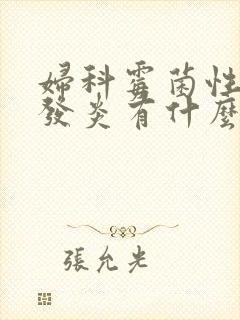 婦科霉菌性
發炎有什麼
張允光